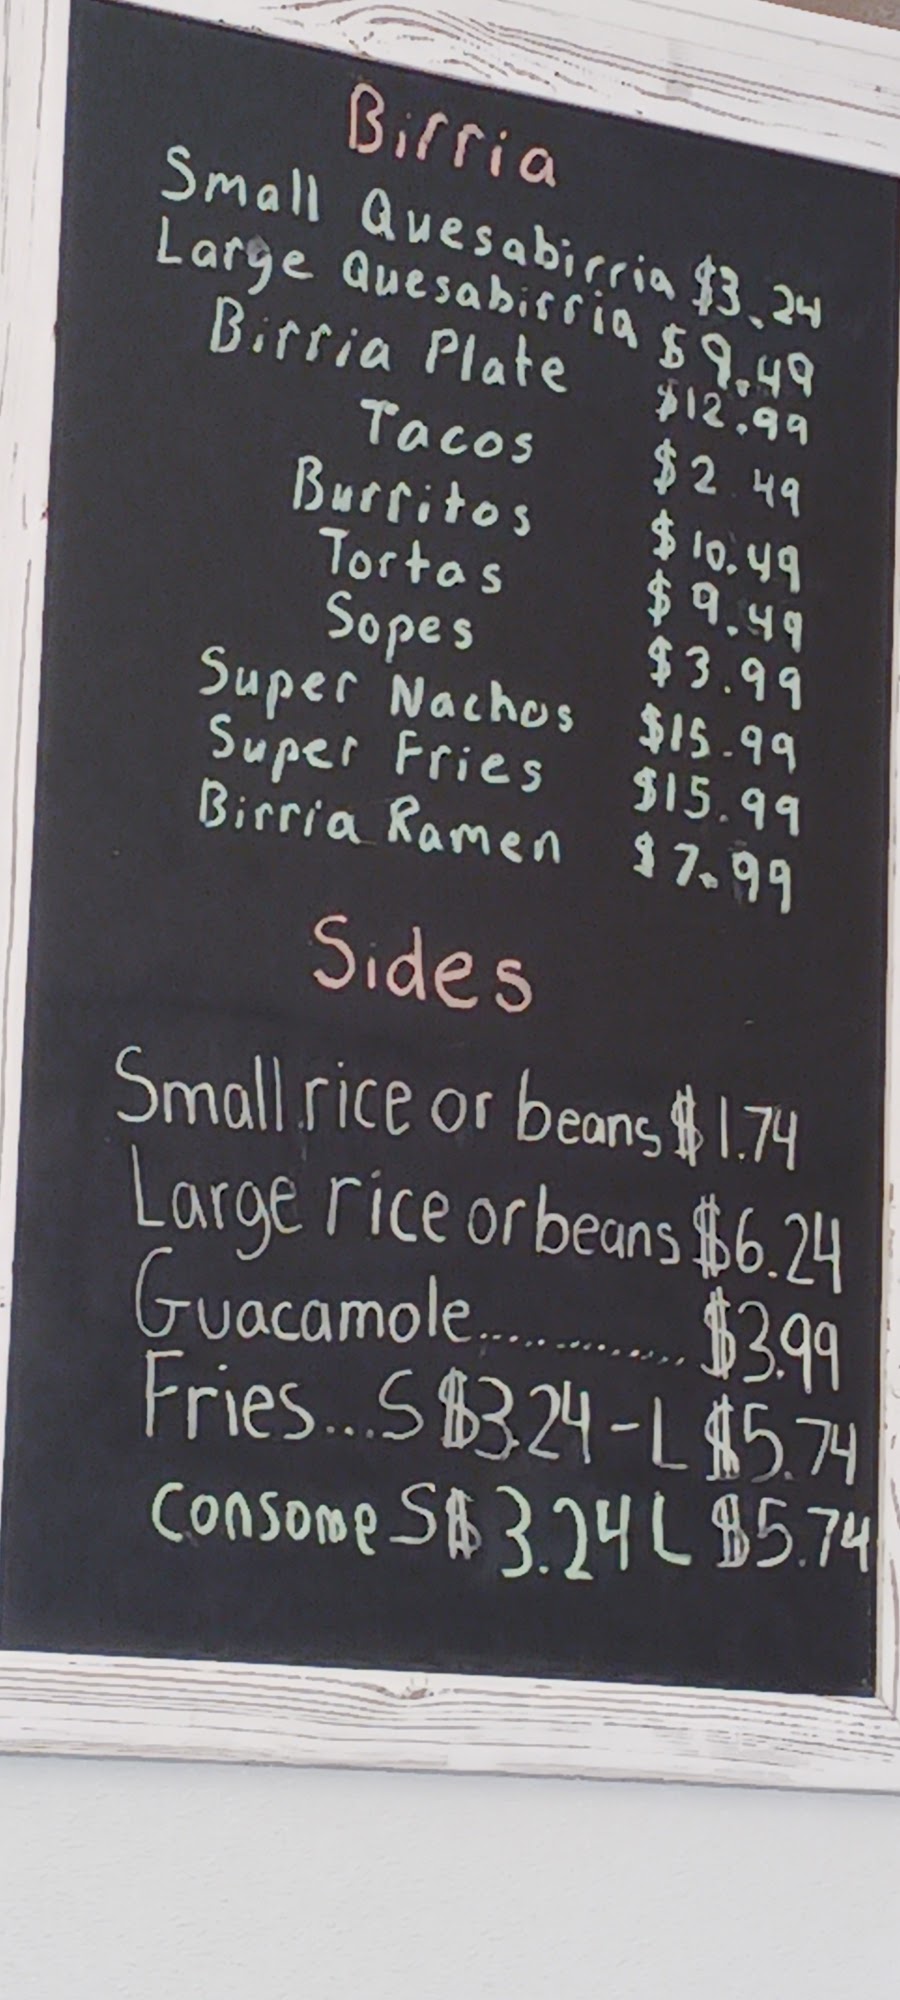 Birria
Small Quesabirria $3.24
Large Quesabirria $9.49
Birria Plate $12.99
Tacos $2.49
Burritos $10.49
Tortas $9.49
Sopes $3.99
Super Nachos $15.99
Super Fries $15.99
Birria Ramen $7.99
Sides
Small rice or beans $1.74
Large rice or beans $6.24
Guacamole............ $3.99
Fries...S $3.24-L $5.74
Consome S $3.24 L $5.74